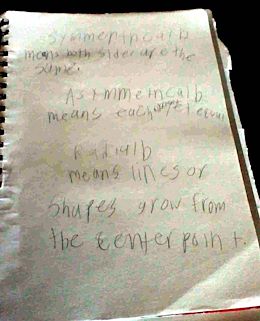 Symmetricalb
means both sides are the
same.
Asymmetricalb
means each
Radialb
means lines or
shapes grow from
the center point.